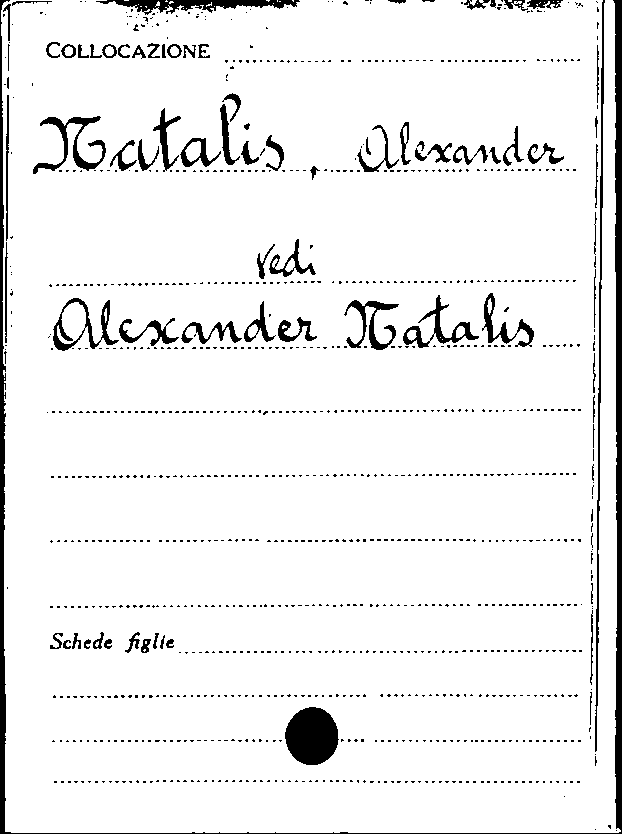 COLLOCAZIONE
Natalis, Alexander
vedi
Alexander Natalis
Schede figlie